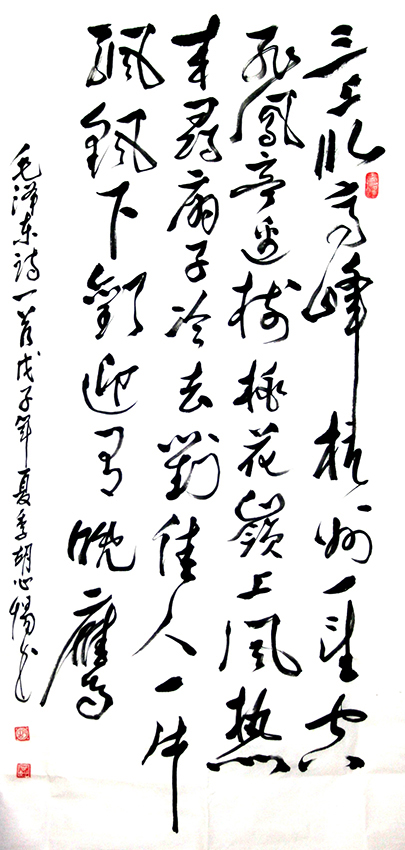 三上北高峰杭州一望空
飛鳳亭邊樹桃花嶺上風热
来尋扇子冷去對佳人一片
飄飄下歡迎有晚鷹
毛澤东詩一首戊子年夏季胡心